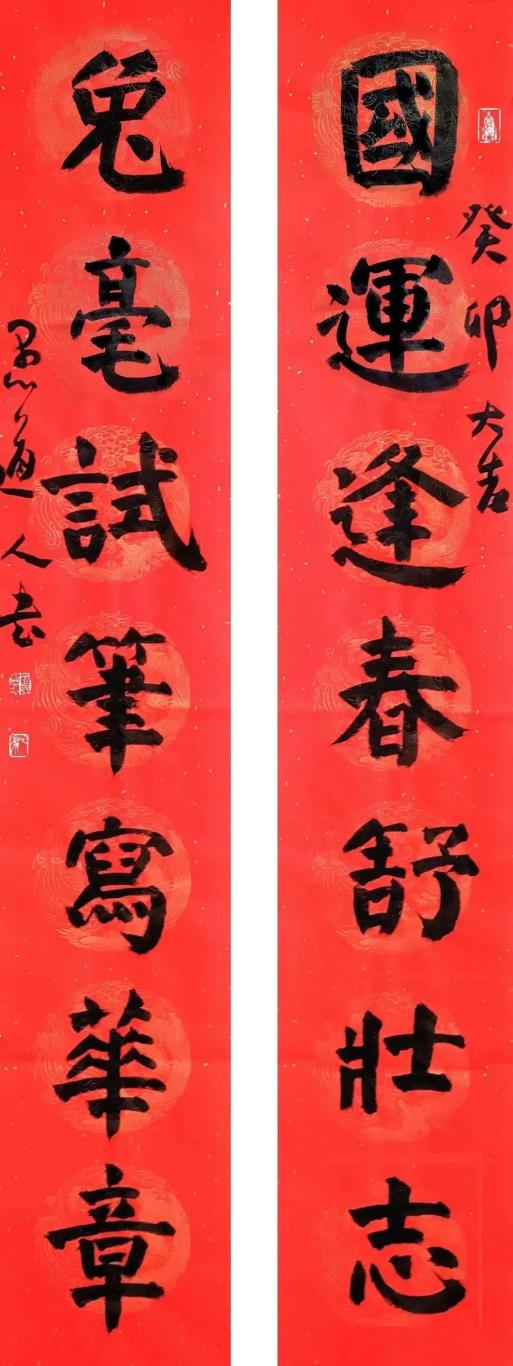 癸卯大吉
國運逢春舒壯志
兔毫試筆寫華章
道人书